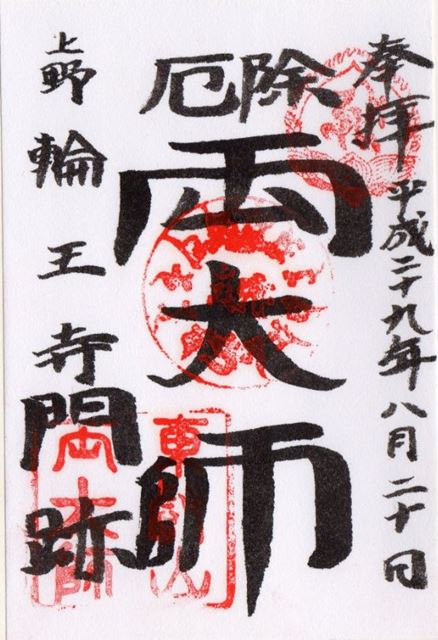 奉拝 平成二十九年八月二十日
厄除
両大師
上野 輪王寺門跡